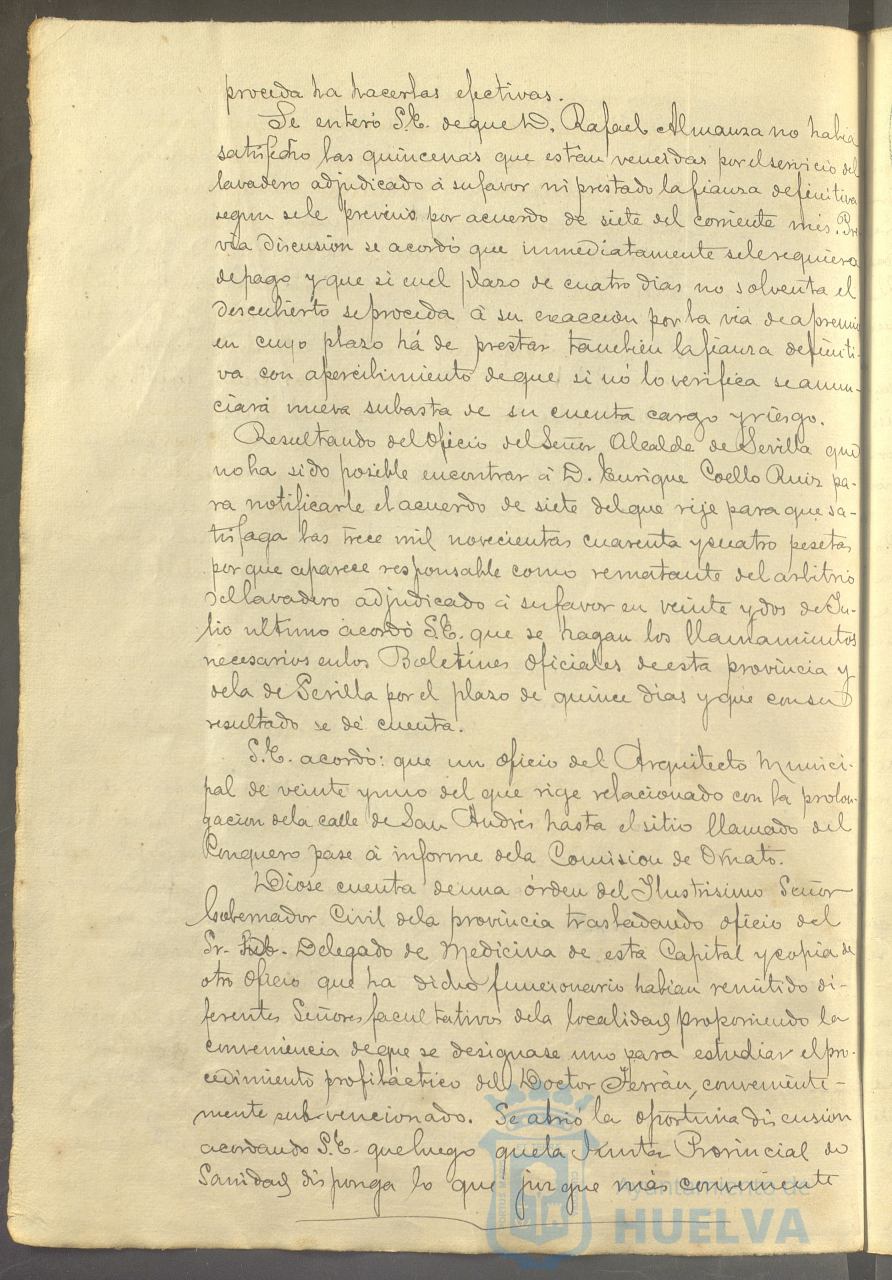 proceda ha hacerlas efectivas.
Se enteró S.E. de que D. Rafael Almanza no habia
satisfecho las quincenas que estan vencidas por el servicio del
lavadero adjudicado á su favor ni prestado la fianza definitiva
segun se le previno por acuerdo de siete del corriente mes. Pre
via discusion se acordó que inmediatamente se le requiera
de pago y que si en el plazo de cuatro dias no solventa el
descubierto se proceda á su exaccion por la via de apremio
en cuyo plazo há de prestar tambien la fianza definiti-
va con apercibimiento de que si nó lo verifica se anun-
ciará nueva subasta de su cuenta cargo y riesgo.
Resultando del oficio del Señor Alcalde de Sevilla que
no ha sido posible encontrar á D. Enrique Coello Ruiz pa-
ra notificarle el acuerdo de siete del que rije para que sa-
tisfaga las trece mil novecientas cuarenta y cuatro pesetas
por que aparece responsable como rematante del arbitrio
del lavadero adjudicado á su favor en veinte y dos de Ju-
lio ultimo acordó S.E. que se hagan los llamamientos
necesarios en los Boletines oficiales de esta provincia y
de la de Sevilla por el plazo de quince dias y que con su
resultado se dé cuenta.
S.E. acordó: que un oficio del Arquitecto Munici-
pal de veinte y uno del que rige relacionado con la prolon-
gacion de la calle de San Andrés hasta el sitio llamado del
Conquero pase á informe de la Comision de Ornato.
Diose cuenta de una órden del Ilustrisimo Señor
Gobernador Civil de la provincia trasladando oficio del
Sr. Sub. Delegado de Medicina de esta Capital y copia de
otro oficio que ha dicho funcionario habian remitido di-
ferentes Señores facultativos de la localidad proponiendo la
conveniencia de que se designase uno para estudiar el pro-
cedimiento profiláctico del Doctor Ferrán, conveniente-
mente subvencionado. Se abrió la oportuna discusion
acordando S.E. que luego que la Junta Provincial de
Sanidad disponga lo que juzgue más conveniente
Ayuntamiento de
HUELVA